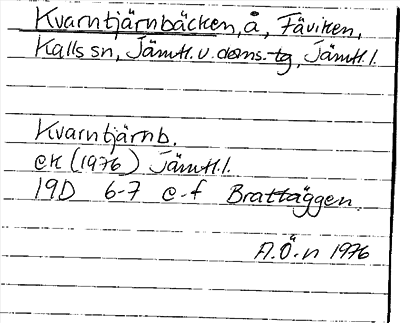 Kvarntjärnbäcken, å, Fäviken,
Kalls sn, Jämtl. v. doms.-tg, Jämtl. l.
Kvarntjärnb.
ek (1976) Jämtl. l.
19D 6-7 e-f Brattäggen.
A.Ö-n 1976